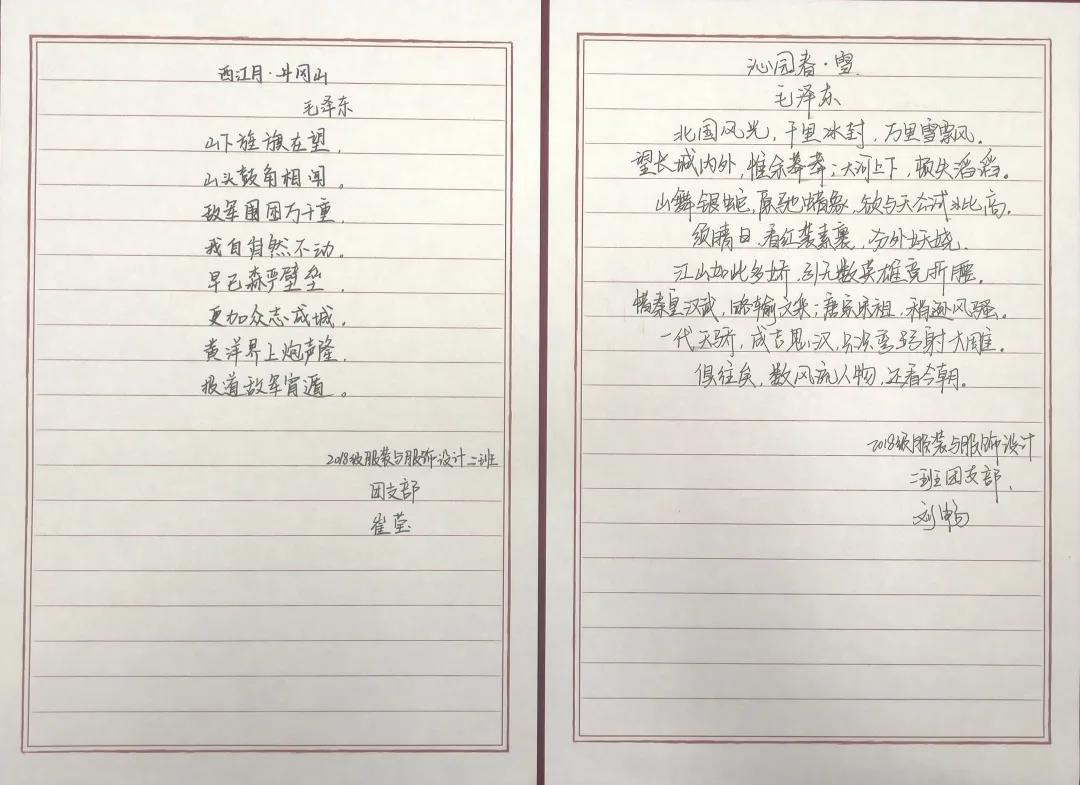 西江月·井冈山
毛泽东
山下旌旗在望,
山头鼓角相闻。
敌军围困万千重,
我自岿然不动。
早已森严壁垒,
更加众志成城,
黄洋界上炮声隆,
报道敌军宵遁。
2018级服装与服饰设计二班
团支部
崔莹
沁园春·雪
毛泽东
北国风光,千里冰封,万里雪飘。
望长城内外,惟余莽莽;大河上下,顿失滔滔。
山舞银蛇,原驰蜡象,欲与天公试比高。
须晴日,看红装素裹,分外妖娆.
江山如此多娇,引无数英雄竞折腰。
惜秦皇汉武,略输文采;唐宗宋祖,稍逊风骚。
一代天骄,成吉思汗,只识弯弓射大雕。
俱往矣,数风流人物,还看今朝。
2018级服装与服饰设计
二班团支部.
刘畅